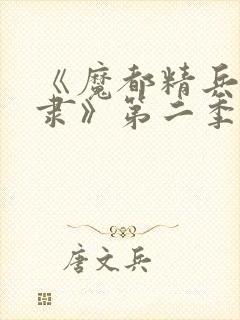 《魔都精兵
隶》第二季
唐文兵